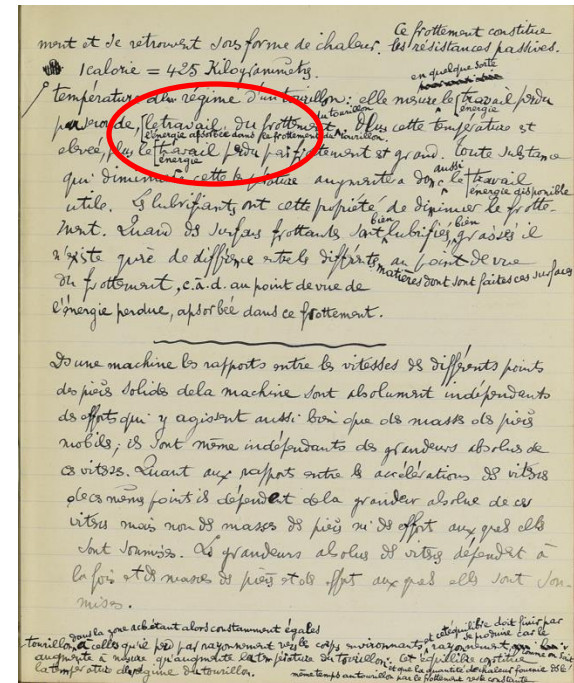 Ce frottement constitue
ment et se retrouvent sous forme de chaleur. les résistances passives.
1 calorie = 425 Kilogrammètres.
en quelque sorte
température de régime d'un tourillon: elle mesure le travail perdu
du tourillon
le travail du frottement. Plus cette température est
l'énergie absorbée dans le frottement du tourillon.
elevée, plus le travail perdu par frottement est grand. Toute substance
énergie
qui diminue cette température augmentera donc aussi le travail
énergie disponible
utile. Les lubrifiants ont cette propriété de diminuer le frotte-
bien bien
ment. Quand des surfaces frottantes sont lubrifiées, graissées il
n'existe guère de différence entre les différentes au point de vue
matières dont sont faites ces surfaces
du frottement, c.à.d. au point de vue de
l'énergie perdue, absorbée dans ce frottement.
Ds une machine les rapports entre les vitesses ds différents points
des pièces solides de la machine sont absolument indépendants
ds efforts qui y agissent aussi bien que ds masses ds pièces
mobiles; ils sont même indépendants des grandeurs absolues de
ces vitesses. Quant aux rapports entre les accélérations ds vitesses
de ces mêmes points ils dépendent de la grandeur absolue de ces
vitesses mais non ds masses ds pièces ni ds effort aux quels elles
sont soumises. Les grandeurs absolues ds vitesses dépendent à
la fois et ds masses ds pièces et ds effort aux quels elles sont sou-
mises.
dans la zone achetant alors constamment égales et cet équilibre doit finir par
tourillon à celles qu'il perd par rayonnement vers les corps environnants se produire car le rayonnement
augmente à mesure qu'augmente la température du tourillon. Cet équilibre constitue
la température de régime du tourillon. et que la quantité de chaleur fournie ds le
même temps au tourillon par le frottement reste constante